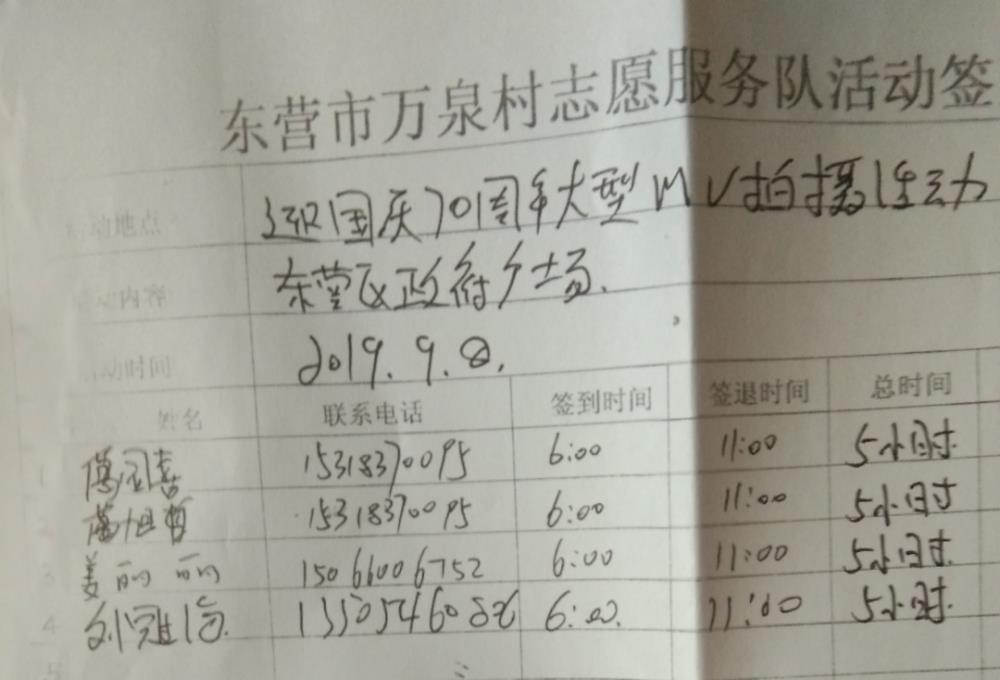 东营市万泉村志愿服务队活动签
活动地点 迎国庆70周年大型MV拍摄活动
活动内容 东营区政府广场.
活动时间 2019.9.8.
姓名 联系电话 签到时间 签退时间 总时间
1 15318370095 6:00 11:00 5小时.
2 15318370095 6:00 11:00 5小时
3 姜丽丽 15066006752 6:00 11:00 5小时.
4 6:00. 11:00 5小时.
5